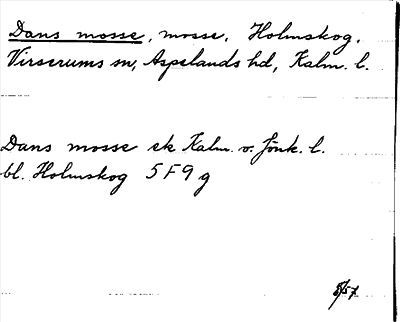 Dans mosse, mosse, Holmskog,
Virserums sn, Aspelands hd, Kalm. l.
Dans mosse ek Kalm. v. Jönk. l.
bl. Holmskog 5F9g
8/57